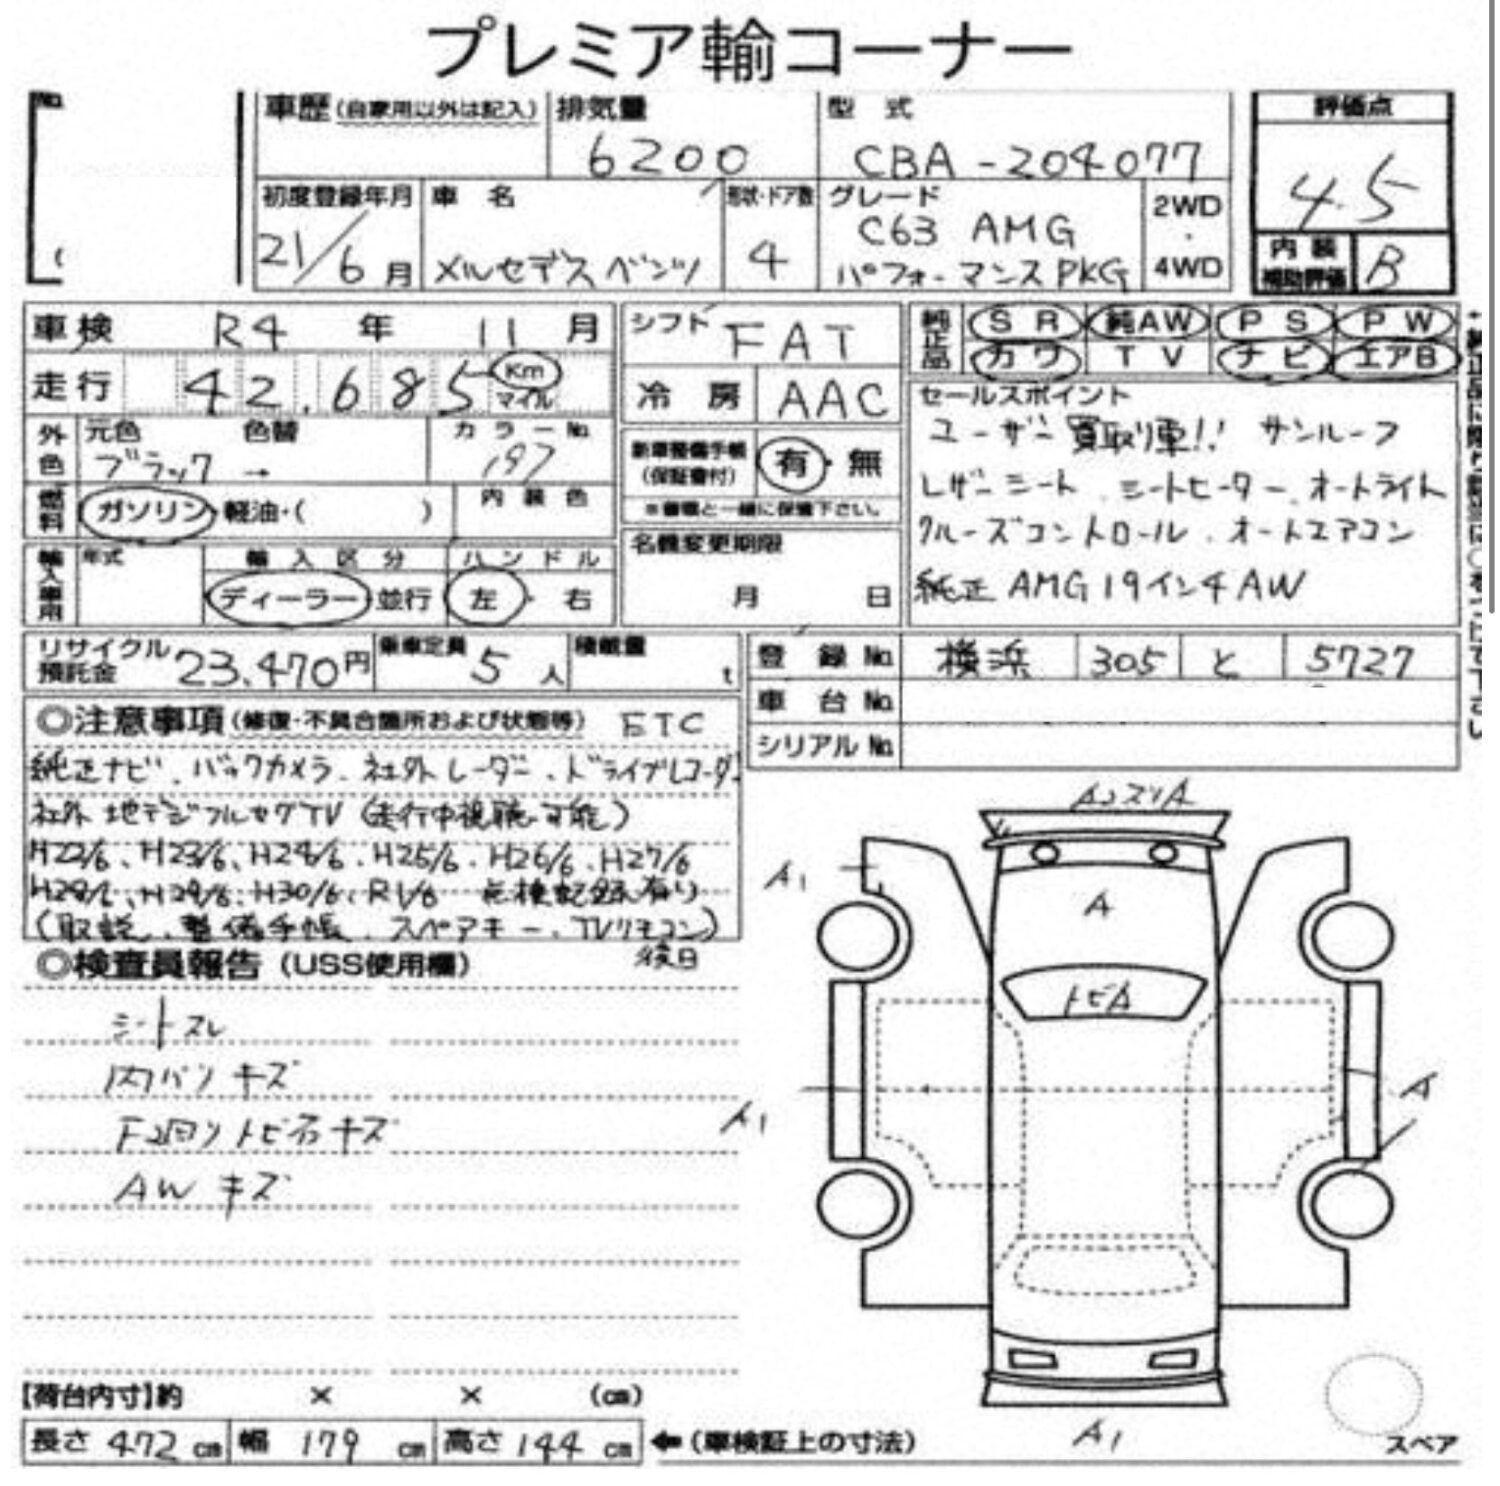 プレミア輸コーナー
No.
車歴(自家用以外は記入) 排気量 型式 評価点
6200 CBA-204077 4.5
初度登録年月 車名 形状・ドア数 グレード 2WD・4WD
21/6月 メルセデスベンツ 4 C63 AMG
パフォーマンスPKG
内装補助評価 B
車検 R4年 11月 シフト FAT 純正品 SR 純AW PS PW
走行 42,685 Km マイル 冷房 AAC カワ TV ナビ エアB
外色 元色 色替 カラーNo. 新車整備手帳(保証書付) 有・無 セールスポイント
ブラック → 197 ※書類と一緒に保管下さい。 ユーザー買取り車!! サンルーフ
燃料 ガソリン・軽油・( ) 内装色 レザーシート、シートヒーター、オートライト
名義変更期限 クルーズコントロール、オートエアコン
輸入車用 年式 輸入区分 ハンドル 純正AMG19インチAW
ディーラー・並行 左・右 月 日
リサイクル預託金 23,470円 乗車定員 5人 積載量 t 登録No. 横浜 305 と 5727
車台No.
シリアルNo.
◎注意事項(修復・不具合箇所および状態等) ETC
純正ナビ、バックカメラ、社外レーダー、ドライブレコーダー
社外地デジフルセグTV(走行中視聴可能)
H22/6、H23/6、H24/6、H25/6、H26/6、H27/6
H28/6、H29/6、H30/6、R1/6 点検記録有り
(取説、整備手帳、スペアキー、TVリモコン)
後日
◎検査員報告(USS使用欄)
シートスレ
内バン キズ
F廻り トビ石キズ
AW キズ
A2 スリA
A1
A
トビA
A1
A
A1
スペア
【荷台内寸】約 × × (cm)
長さ 472cm 幅 179cm 高さ 144cm ←(車検証上の寸法)